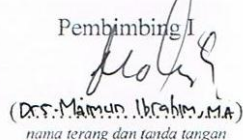 Pembimbing I
(Drs. Maimun Ibrahim, M.A)
nama terang dan tanda tangan